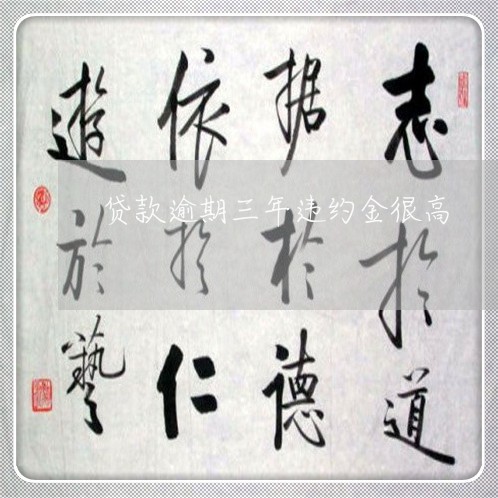 志於道
据於德
依於仁
遊於藝
贷款逾期三年违约金很高